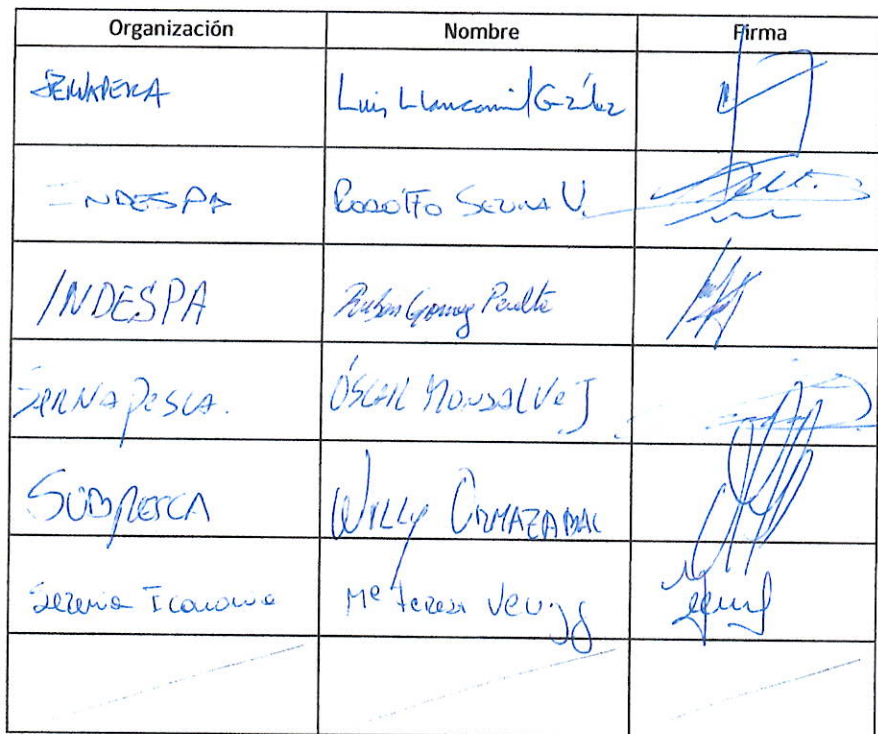 Organización Nombre Firma
SERNAPESCA Luis Llancamil Gzález
INDESPA Rodolfo V.
INDESPA Ruben Gomez Peralta
SERNAPESCA. ÓSCAR MONSALVE J
SUBPESCA WILLY ORMAZABAL
Economia Mª Teresa